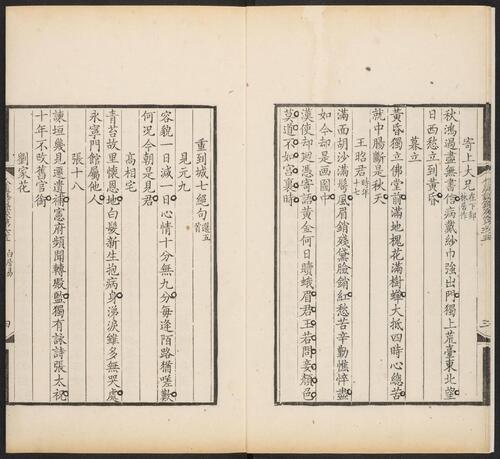 寄上大兄 在下邽村居作
秋鴻過盡無書信病戴紗巾強出門獨上荒臺東北望
日西愁立到黃昏
暮立
黃昏獨立佛堂前滿地槐花滿樹蟬大抵四時心總苦
就中腸斷是秋天
王昭君 時年十七
滿面胡沙滿鬢風眉銷殘黛臉銷紅愁苦辛勤憔悴盡
如今却是畫圖中
漢使却迴憑寄語黃金何日贖蛾眉君王若問妾顏色
莫道不如宮裏時
重到城七絕句 選五首
見元九
容貌一日減一日心情十分無九分每逢陌路猶嗟歎
何況今朝是見君
高相宅
青苔故里懷恩地白髮新生抱病身涕淚雖多無哭處
永寧門館屬他人
張十八
諫垣幾見遷遺補憲府頻聞轉殿監獨有詠詩張太祝
十年不改舊官銜
劉家花
白居易
四